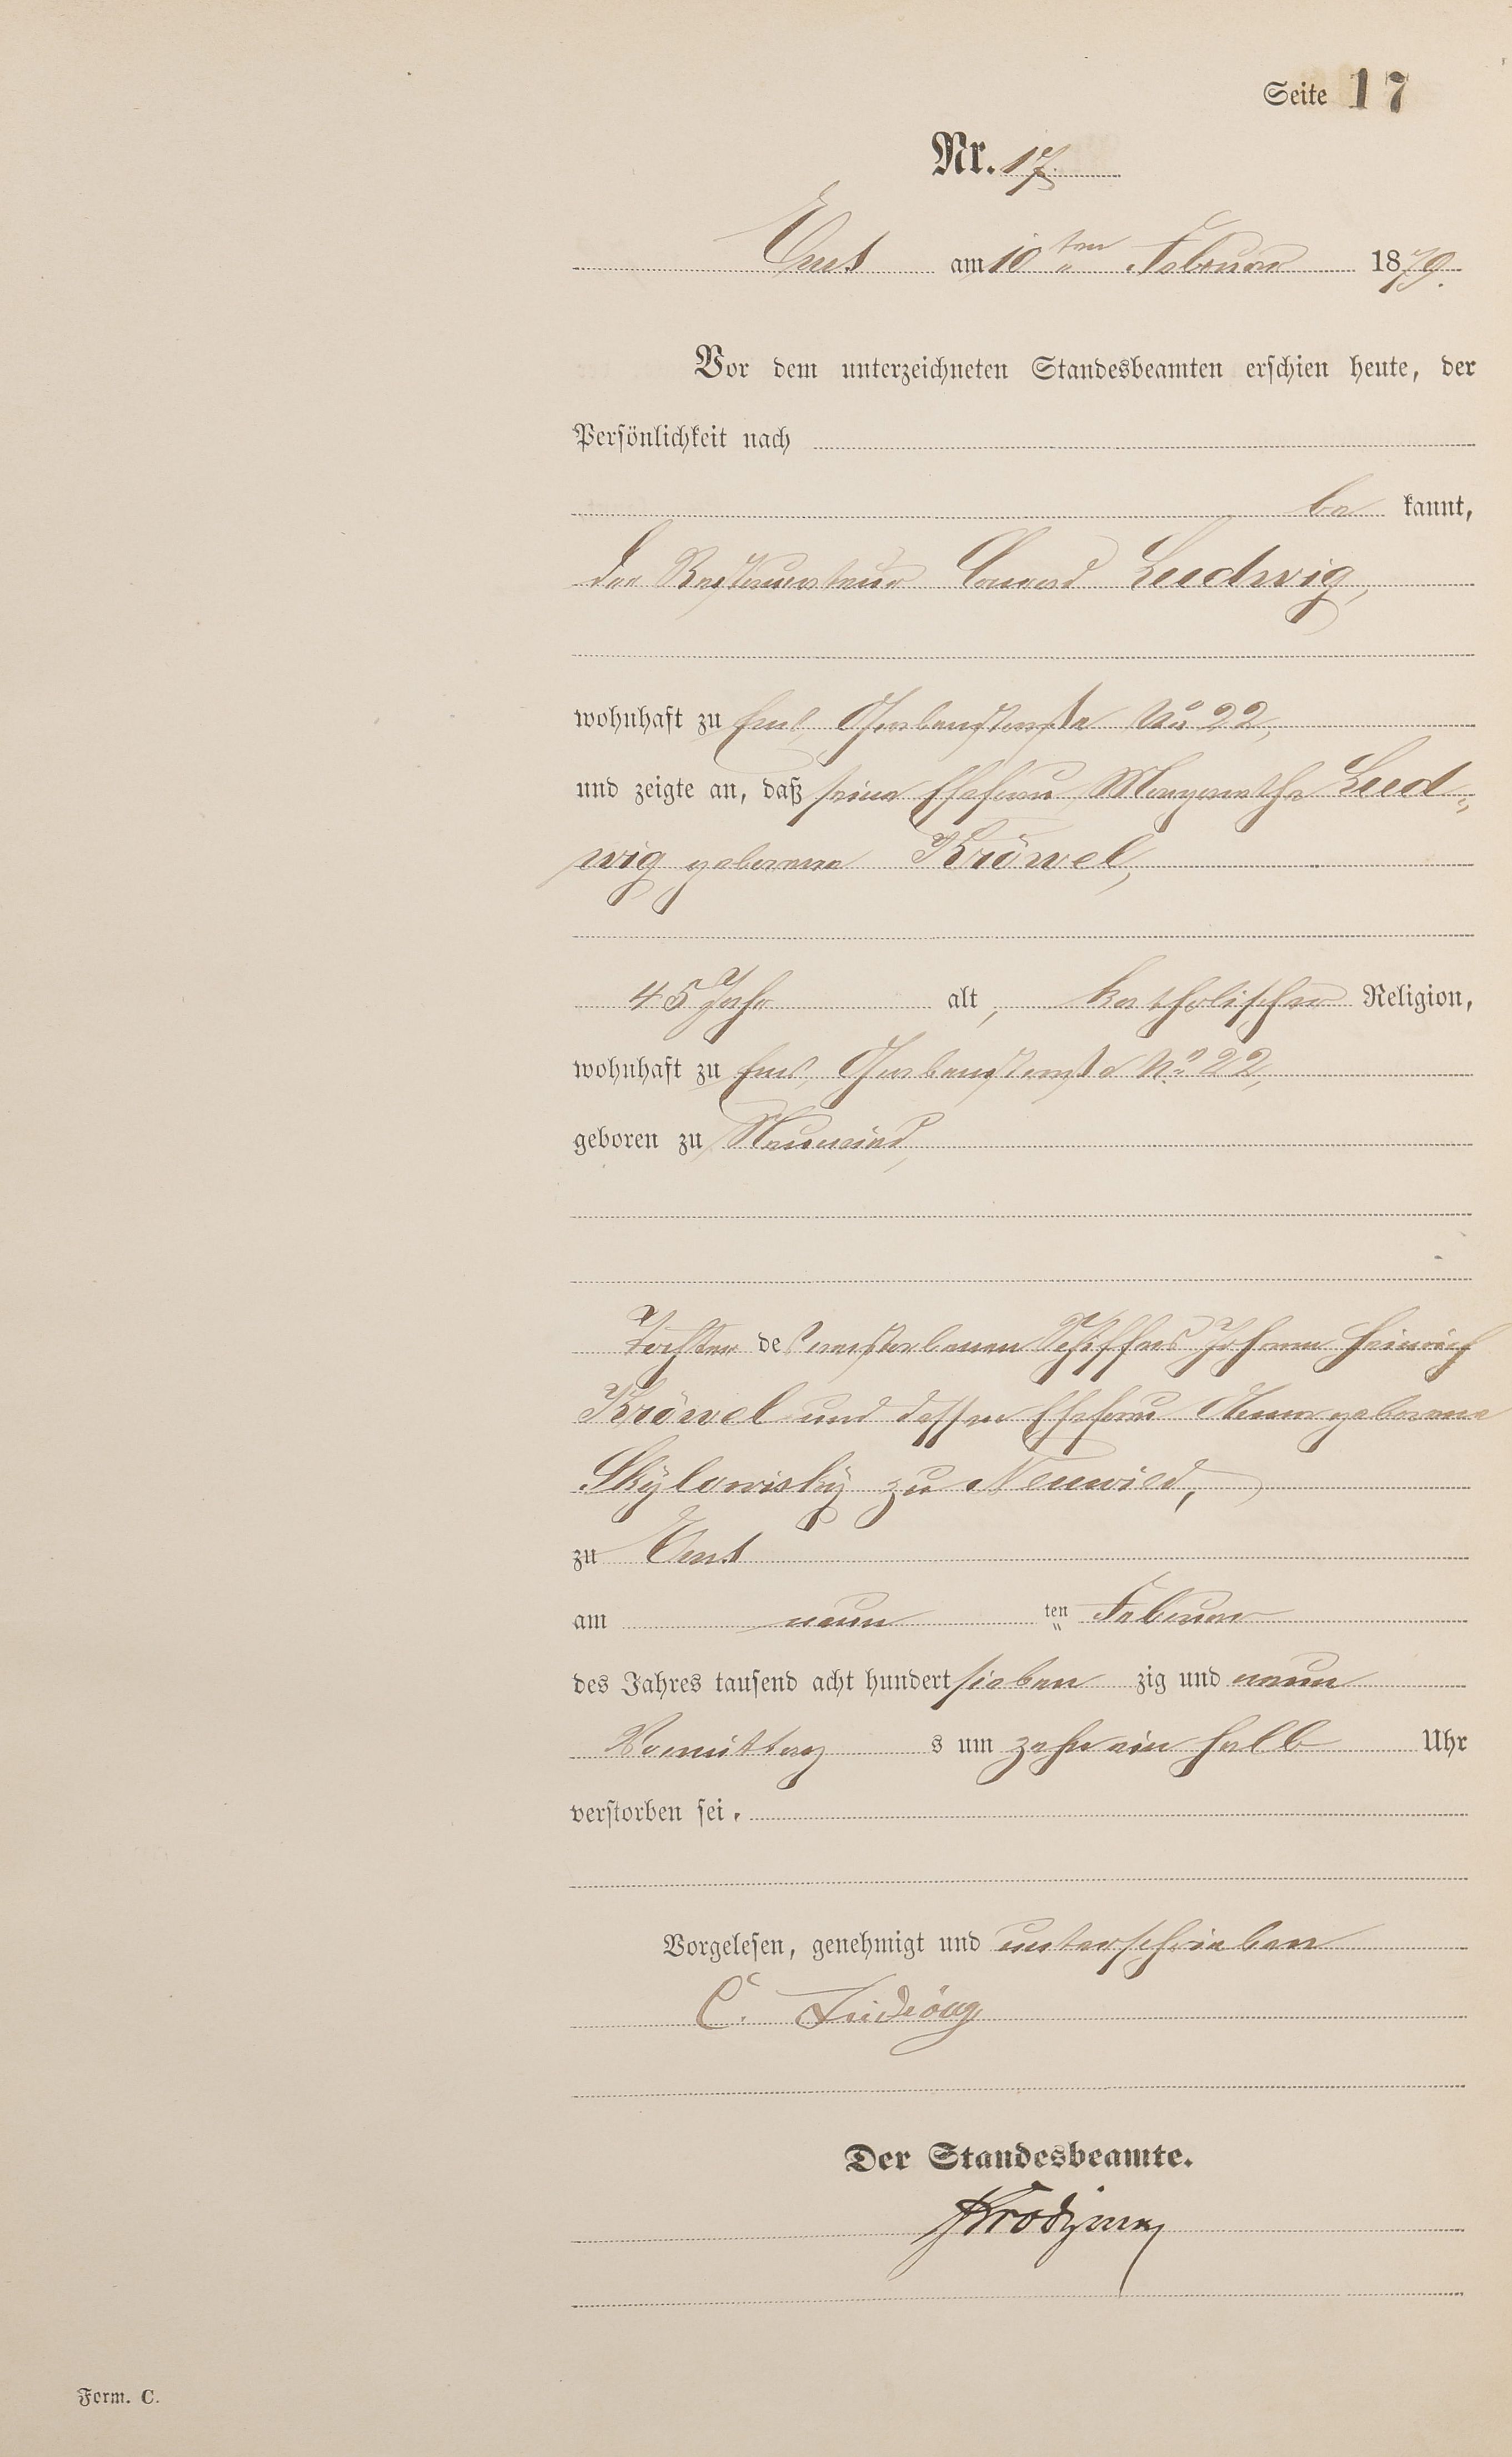 Seite 17
Nr. 17.
Ems am 10ten Februar 1879.
Vor dem unterzeichneten Standesbeamten erschien heute, der
Persönlichkeit nach
be kannt,
der Restaurateur Conrad Ludwig,
wohnhaft zu Ems, Grabenstraße No 22,
und zeigte an, daß seine Ehefrau Margarethe Lud-
wig geborene Kröwel,
45 Jahr alt, katholischer Religion,
wohnhaft zu Ems, Grabenstraße No 22,
geboren zu Neuwied,
Tochter des verstorbenen Schiffers Johann Heinrich
Kröwel und dessen Ehefrau Anna geborene
Skÿlowiskÿ zu Neuwied,
zu Ems
am neun ten Februar
des Jahres tausend acht hundert sieben zig und neun
Vormittag s um zehn ein halb Uhr
verstorben sei.
Vorgelesen, genehmigt und unterschrieben
C. Ludwig
Der Standesbeamte.
Form. C.